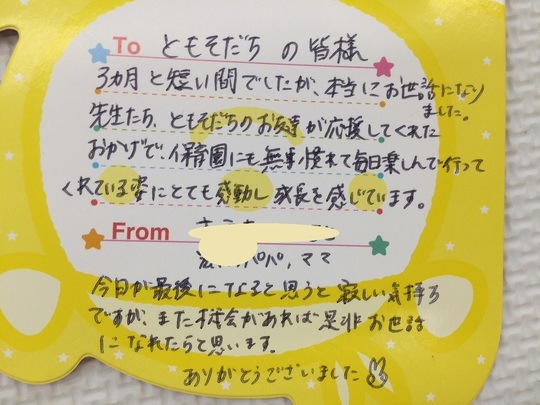 To ともそだち の皆様
3ヵ月と短い間でしたが、本当にお世話になり
ました。
先生たち、ともそだちのお友達が応援してくれた
おかげで、幼稚園にも無事慣れて毎日楽しんで行って
くれている姿にとても感動し成長を感じています。
From
パパ、ママ
今日が最後になると思うと寂しい気持ち
ですが、また機会があれば是非お世話
になれたらと思います。
ありがとうございました